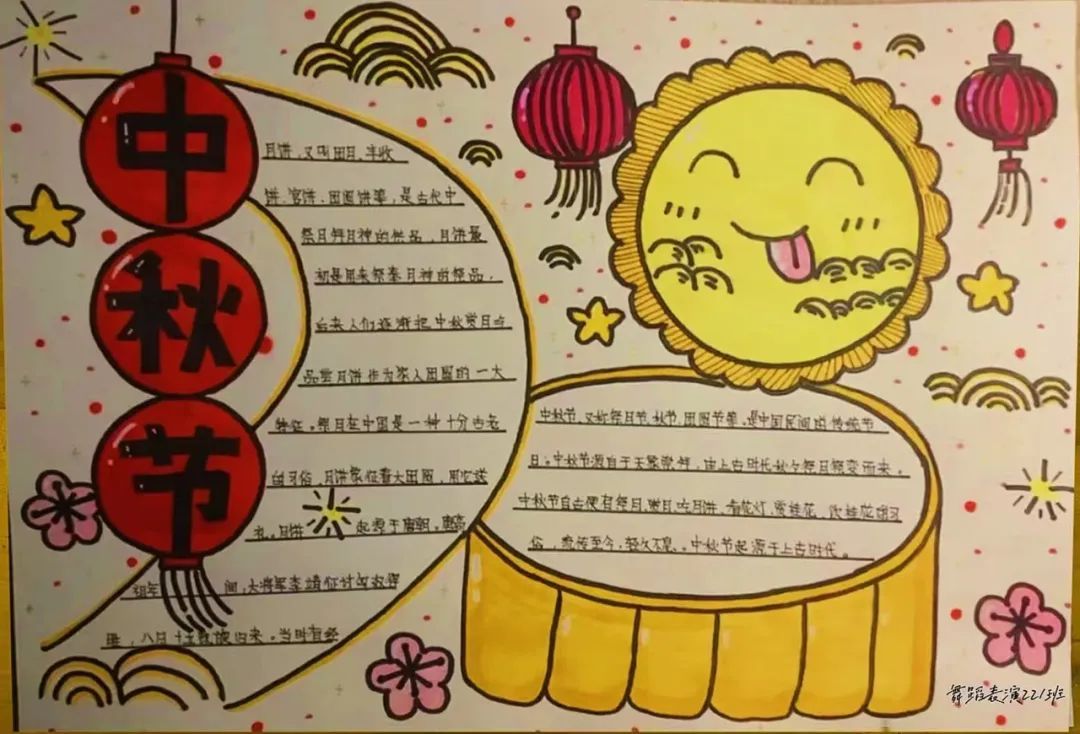 中
秋
节
月饼,又叫团月、丰收
饼、宫饼、团圆饼等,是古代中
祭月拜月神的供品,月饼最
初是用来祭奉月神的祭品,
后来人们逐渐把中秋赏月与
品尝月饼作为家人团圆的一大
特征。祭月在中国是一种十分古老
的习俗,月饼象征着大团圆,用它送
礼。月饼 起源于唐朝。唐高
祖年 间,大将军李靖征讨匈奴得
胜,八月十五凯旋归来。当时有经
中秋节,又称祭月节、秋节、团圆节等,是中国民间的传统节
日。中秋节源自于天象崇拜,由上古时代秋夕祭月演变而来。
中秋节自古便有祭月、赏月、吃月饼、看花灯、赏桂花、饮桂花酒习
俗,流传至今,经久不息。中秋节起源于上古时代。
舞蹈表演2213班